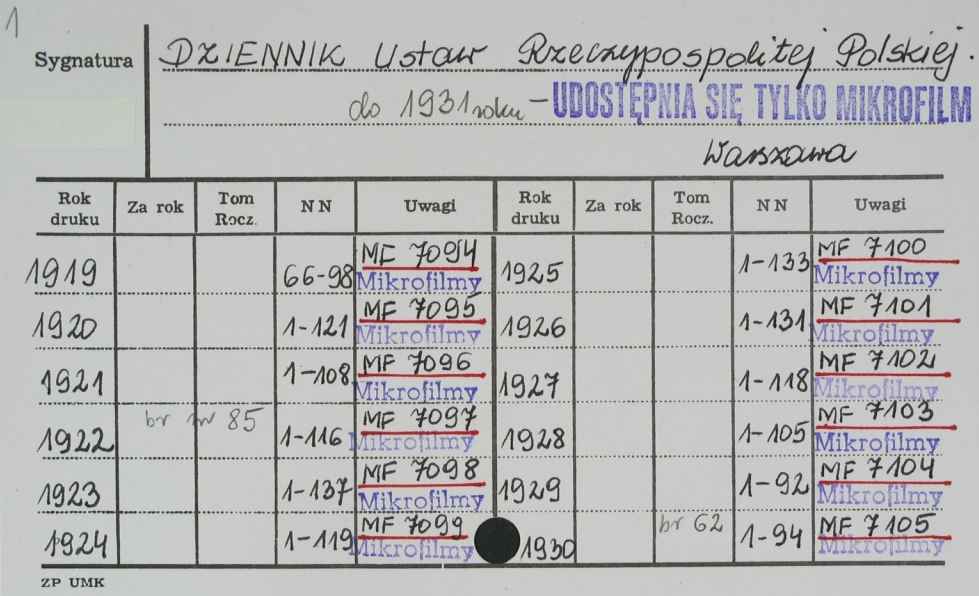 1
Sygnatura DZIENNIK Ustaw Rzeczypospolitej Polskiej.
do 1931 roku – UDOSTĘPNIA SIĘ TYLKO MIKROFILM
Warszawa
Rok druku Za rok Tom Rocz. NN Uwagi Rok druku Za rok Tom Rocz. NN Uwagi
1919 66-98 MF 7094 Mikrofilmy 1925 1-133 MF 7100 Mikrofilmy
1920 1-121 MF 7095 Mikrofilmy 1926 1-131 MF 7101 Mikrofilmy
1921 1-108 MF 7096 Mikrofilmy 1927 1-118 MF 7102 Mikrofilmy
1922 br nr 85 1-116 MF 7097 Mikrofilmy 1928 1-105 MF 7103 Mikrofilmy
1923 1-137 MF 7098 Mikrofilmy 1929 1-92 MF 7104 Mikrofilmy
1924 1-119 MF 7099 Mikrofilmy 1930 br 62 1-94 MF 7105 Mikrofilmy
ZP UMK